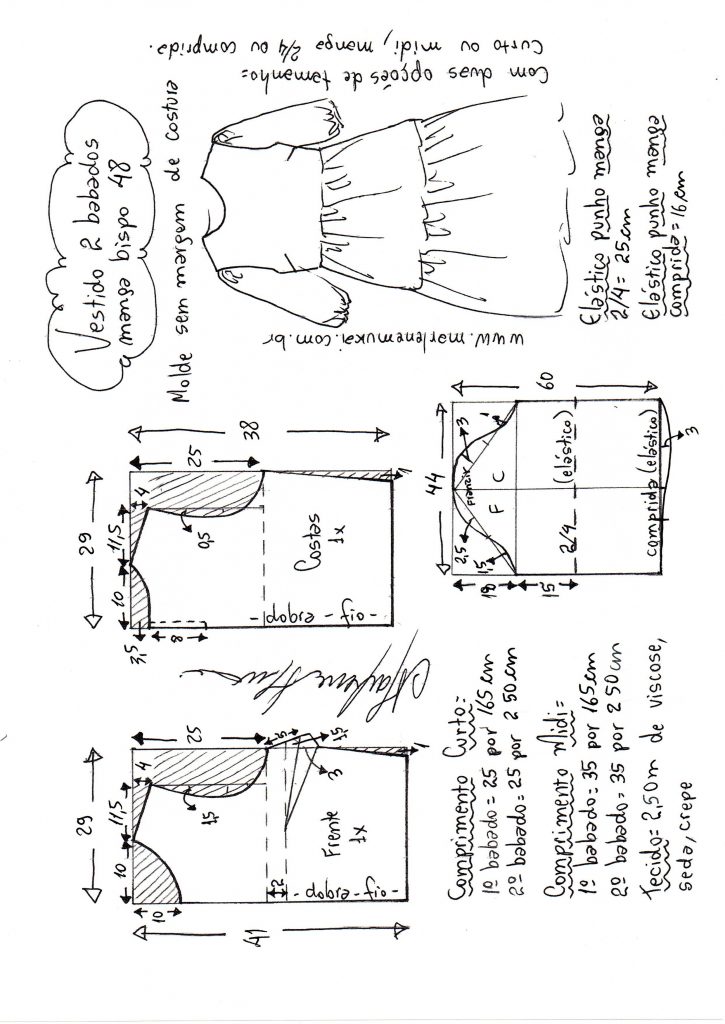 Vestido 2 babados
manga bispo 48
Molde sem margem de costura
Com duas opções de tamanho=
Curto ou midi, manga 2/4 ou comprida.
www.marlenemukai.com.br
Elástico punho manga
2/4 = 25cm
Elástico punho manga
comprida = 16cm
29
10
11,5
4
25
38
3,5
8
0,5
Costas
1x
-fio- dobra-
1
44
60
franzir
3
1
2,5
1,5
F
C
18
15
2/4
(elástico)
comprida (elástico)
3
29
10
11,5
4
25
41
10
1,5
5
1,5
3
2
Frente
1x
-fio- dobra-
1
Comprimento Curto=
1º babado= 25 por 165cm
2º babado= 25 por 250cm
Comprimento Midi=
1º babado= 35 por 165cm
2º babado= 35 por 250cm
Tecido= 2,50m de viscose,
seda, crepe